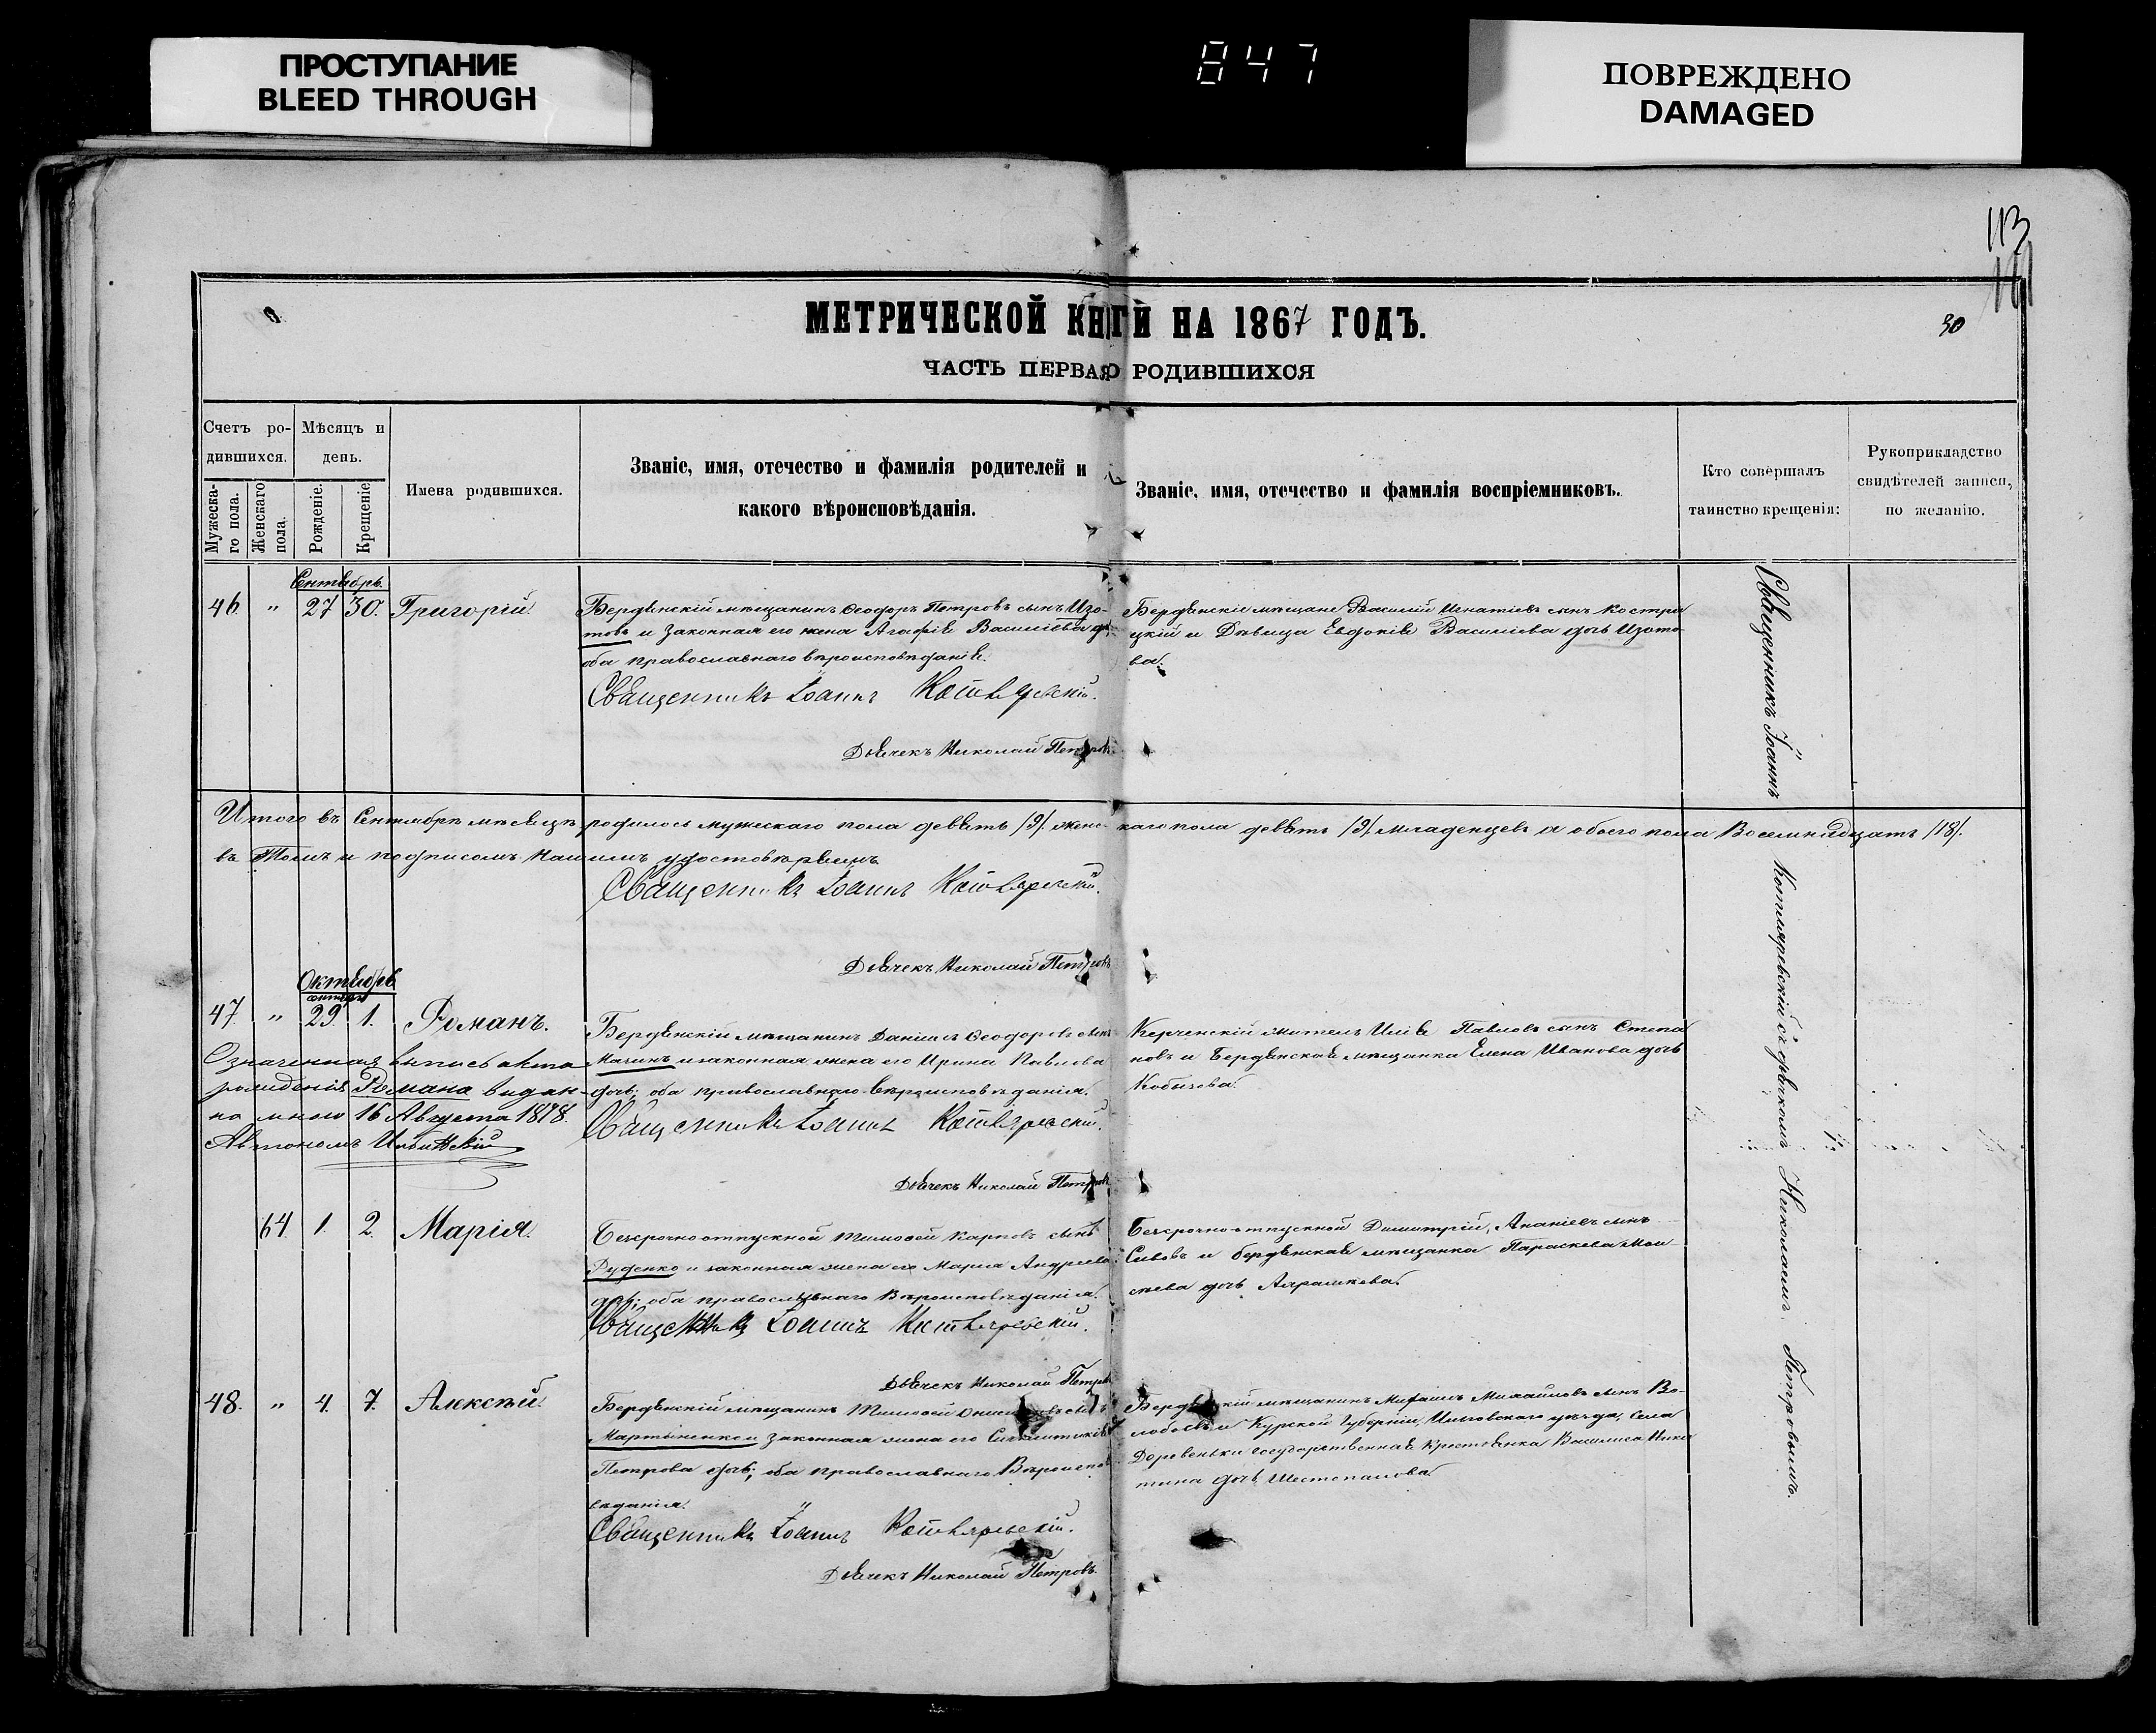 ПРОСТУПАНИЕ
BLEED THROUGH
847
ПОВРЕЖДЕНО
DAMAGED
113
30
МЕТРИЧЕСКОЙ КНИГИ НА 1867 ГОДЪ.
ЧАСТЬ ПЕРВАЯ О РОДИВШИХСЯ
Счетъ ро-
дившихся.
Мужеска-
го пола.
Женскаго
пола.
Мѣсяцъ и
день.
Рожденіе.
Крещеніе.
Имена родившихся.
Званіе, имя, отечество и фамилія родителей и
какого вѣроисповѣданія.
Званіе, имя, отечество и фамилія воспріемниковъ.
Кто совершалъ
таинство крещенія:
Рукоприкладство
свидѣтелей записи,
по желанію.
Сентябрь.
46. " 27 30. Григорій.
Бердянскій мѣщанинъ Ѳеодоръ Петровъ сынъ Изо-
товъ и законная его жена Агафія Василіева
оба православнаго вѣроисповѣданія.
Священникъ Іоаннъ Котляревскій.
Дьячекъ Николай Петровъ
Бердянскіе мѣщане Василій Игнатіевъ сынъ Костри
цкій и Дѣвица Евдокія Василіева дочь Изото-
ва.
Итого въ Сентябрѣ мѣсяцѣ родилось мужескаго пола девять /9/. женскаго пола девять /9/. младенцевъ а обоего пола Восемнадцать /18/.
въ Томъ и подписомъ нашимъ удостовѣряемъ
Священникъ Іоаннъ Котляревскій.
Дьячекъ Николай Петровъ
Октябрь
сентября
47. " 29. 1. Романъ.
Означенная выпись акта
рожденія Романа выдан-
на мною 16 Августа 1878.
Автономъ
Бердянскій мѣщанинъ Даніилъ Ѳеодоровъ сынъ
Мачинъ и законная жена его Ирина Павлова
дочь; оба православнаго вѣроисповѣданія.
Священникъ Іоаннъ Котляревскій.
Дьячекъ Николай Петровъ
Керченскій житель Илія Павловъ сынъ Степа
новъ и Бердянская мѣщанка Елена Иванова дочь
Кобычева.
64 1. 2. Марія.
Безсрочноотпускной Тимоѳей Карповъ сынъ
Руденко и законная жена его Марія Андреева
дочь; оба православнаго Вѣроисповѣданія.
Священникъ Іоаннъ Котляревскій.
Дьячекъ Николай Петровъ
Безсрочноотпускной Димитрій, Ананіевъ сынъ
Сивовъ и бердянская мѣщанка Параскева Мои
сѣева дочь
48. " 4. 7. Алексѣй.
Бердянскій мѣщанинъ Тимоѳей
Мартыненко и законная жена его Синклитикія
Петрова дочь; оба православнаго Вѣроиспо
вѣданія.
Священникъ Іоаннъ Котляревскій.
Дьячекъ Николай Петровъ
Бердянскій мѣщанинъ Михаилъ Михаиловъ сынъ Во-
лобоевъ и Курской Губерніи, Льговскаго уѣзда, села
Деревеньки государственная крестьянка Василиса Ники
тина дочь Шестопалова.
Священникъ Іоаннъ Котляревскій съ дьячкомъ Николаемъ Петровымъ.